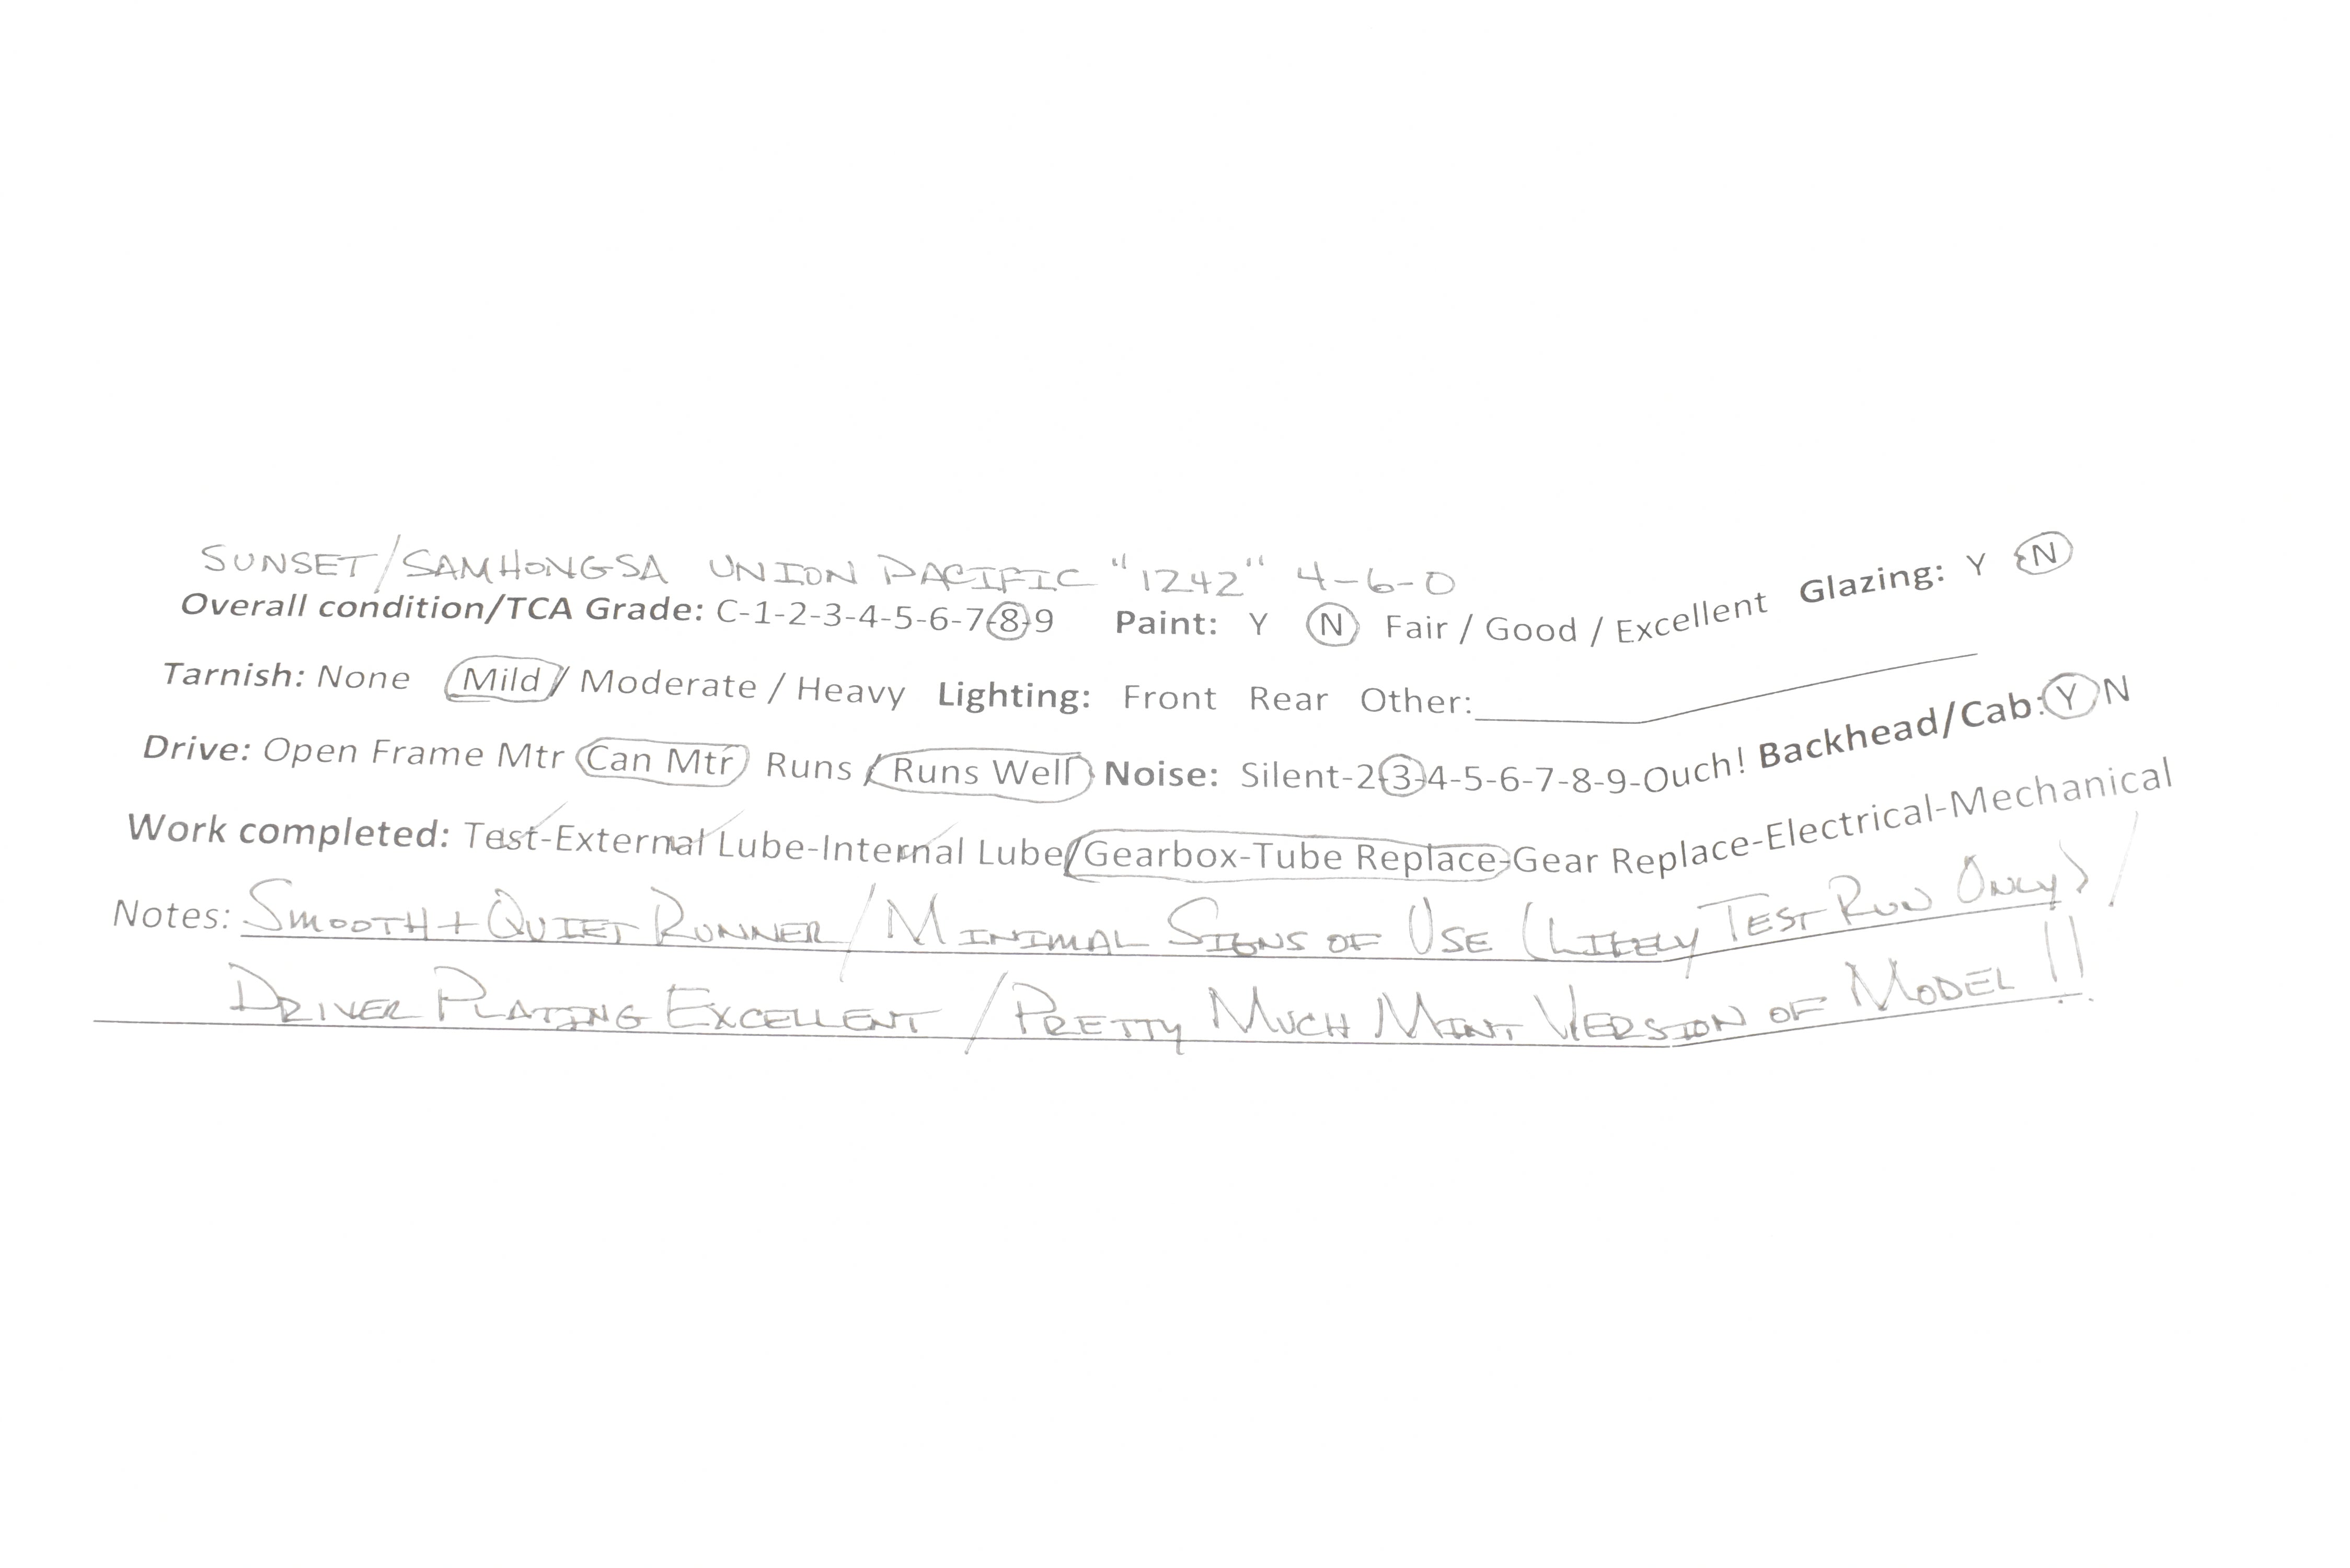 SUNSET/SAMHONGSA UNION PACIFIC "1242" 4-6-0
Overall condition/TCA Grade: C-1-2-3-4-5-6-7-8-9 Paint: Y N Fair / Good / Excellent Glazing: Y N
Tarnish: None Mild / Moderate / Heavy Lighting: Front Rear Other:
Drive: Open Frame Mtr Can Mtr Runs / Runs Well Noise: Silent-2-3-4-5-6-7-8-9-Ouch! Backhead/Cab: Y N
Work completed: Test-External Lube-Internal Lube/Gearbox-Tube Replace-Gear Replace-Electrical-Mechanical
Notes: SMOOTH + QUIET RUNNER / MINIMAL SIGNS OF USE (LIKELY TEST RUN ONLY) /
DRIVER PLATING EXCELLENT / PRETTY MUCH MINT VERSION OF MODEL !!